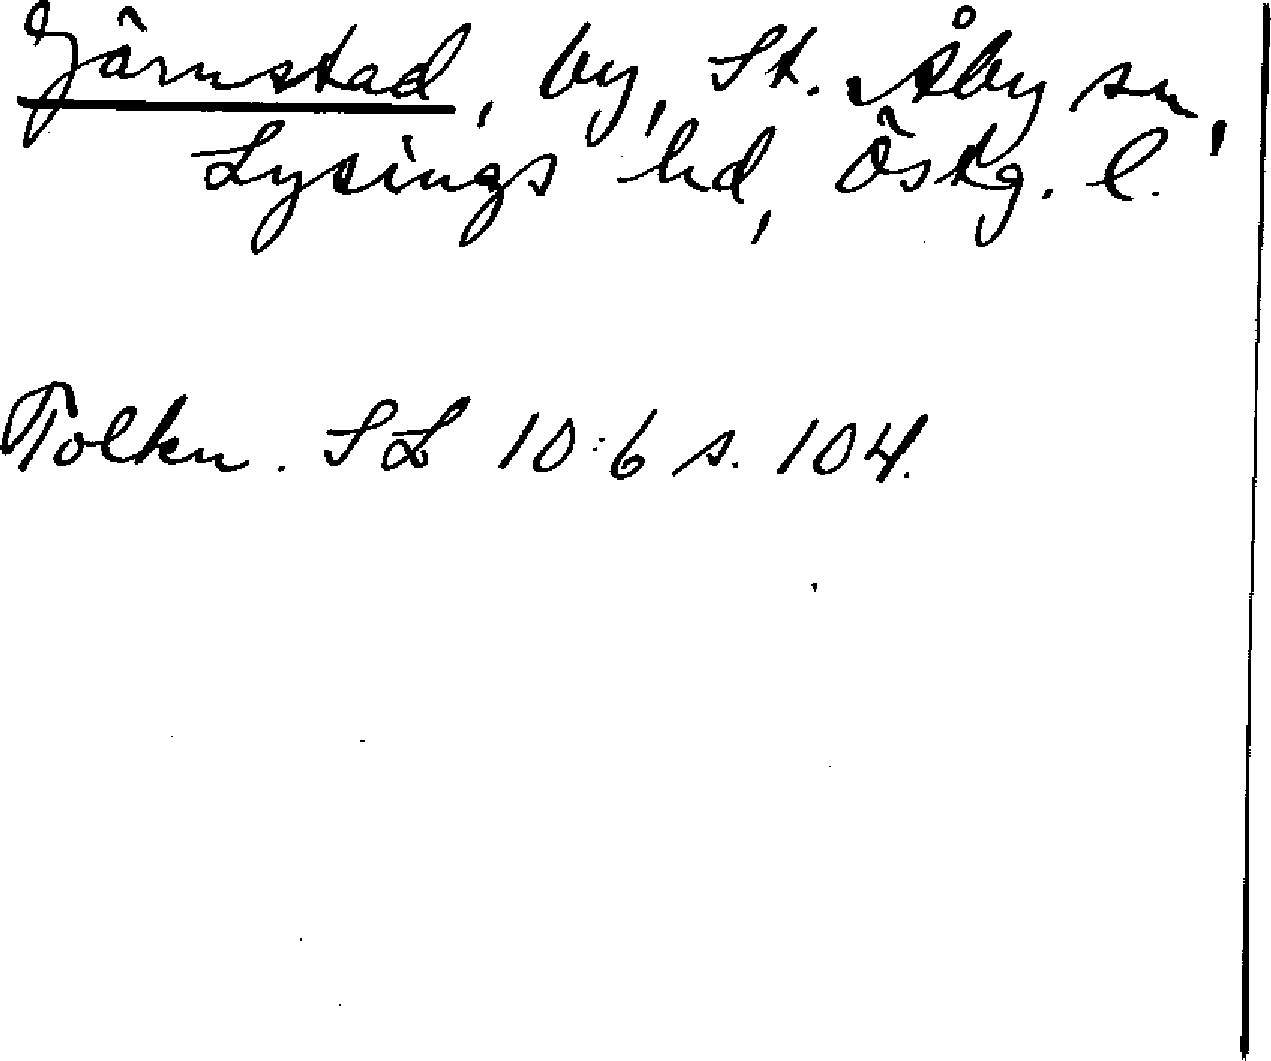 Järnstad, by, St. Åby sn,
Lysings hd, Östg. l.
Tolkn. SL 10:6 s. 104.